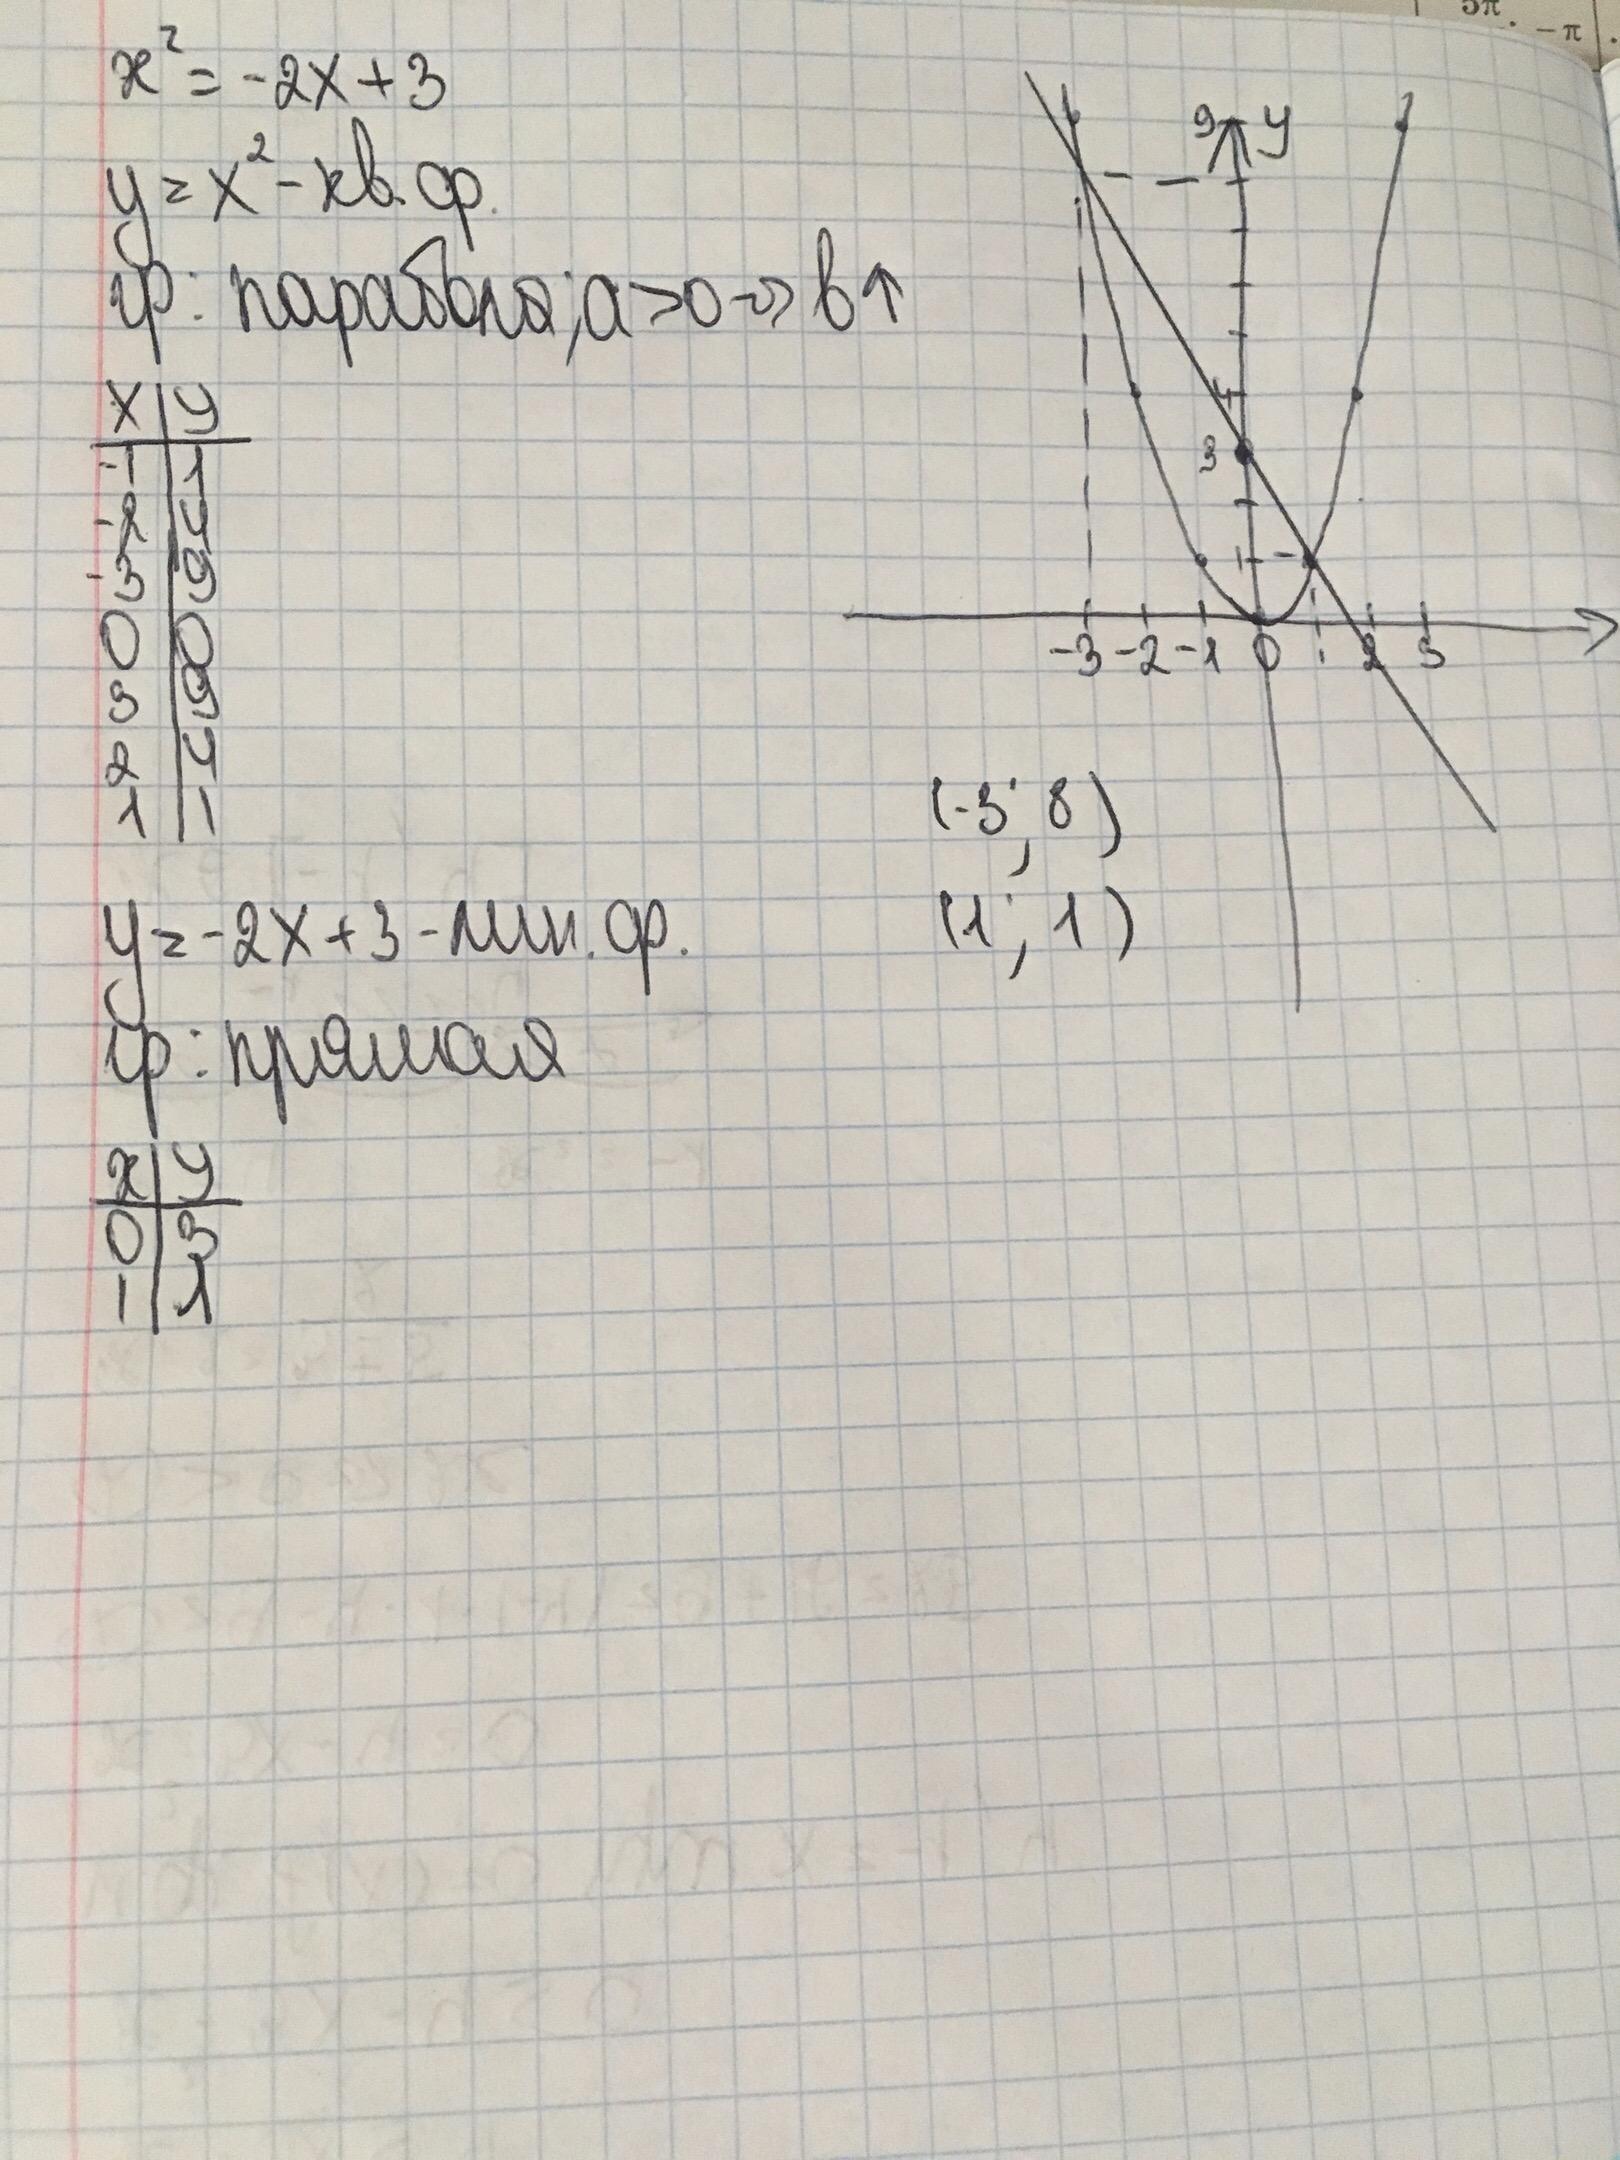 x² = -2x + 3
y = x² - кв. ф.
гр: парабола; a > 0 => в ↑
x | y
-1 | 1
-2 | 4
-3 | 9
0 | 0
3 | 9
2 | 4
1 | 1
y = -2x + 3 - лин. ф.
гр: прямая
x | y
0 | 3
1 | 1
9 y
4
3
1
-3 -2 -1 0 1 2 3
(-3; 8)
(1; 1)
5π
-π